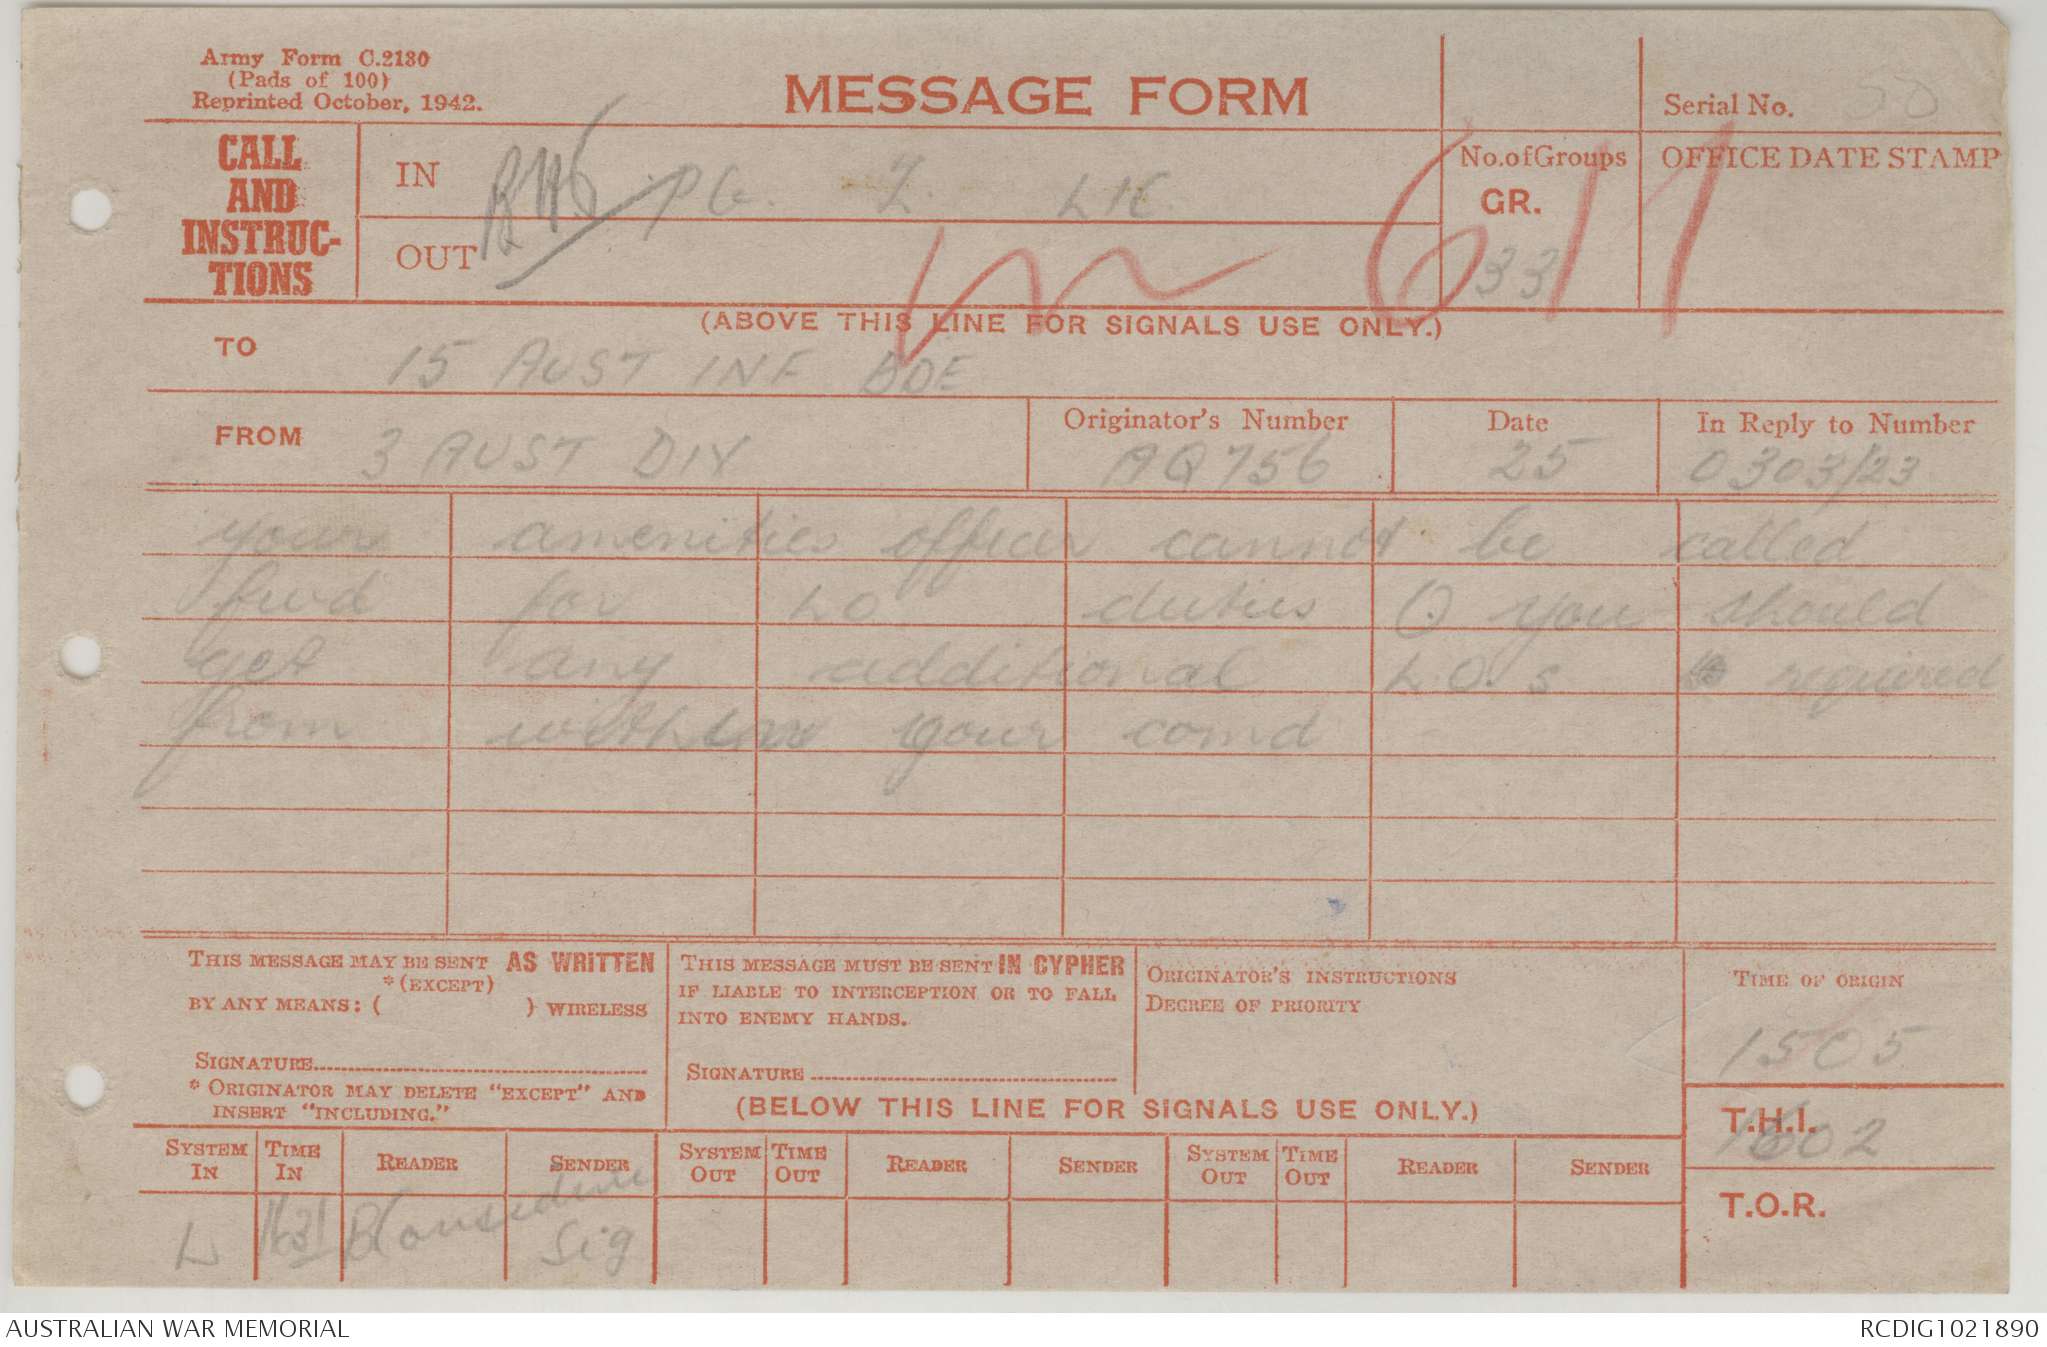 Army Form C.2130
(Pads of 100)
Reprinted October, 1942.
MESSAGE FORM
Serial No. 50
CALL
AND
INSTRUC-
TIONS
IN
PG. Z. LIC.
OUT
No. of Groups
GR.
33
OFFICE DATE STAMP
611
(ABOVE THIS LINE FOR SIGNALS USE ONLY.)
TO 15 AUST INF BDE
FROM 3 AUST DIV
Originator's Number
AQ756
Date
25
In Reply to Number
0303/23
your amenities officer cannot be called
fwd for LO duties (.) you should
get any additional L.O.s required
from within your comd
THIS MESSAGE MAY BE SENT AS WRITTEN
*(EXCEPT)
BY ANY MEANS: ( ) WIRELESS
SIGNATURE
* ORIGINATOR MAY DELETE "EXCEPT" AND
INSERT "INCLUDING."
THIS MESSAGE MUST BE SENT IN CYPHER
IF LIABLE TO INTERCEPTION OR TO FALL
INTO ENEMY HANDS.
SIGNATURE
ORIGINATOR'S INSTRUCTIONS
DEGREE OF PRIORITY
TIME OF ORIGIN
1505
(BELOW THIS LINE FOR SIGNALS USE ONLY.)
T.H.I.
1602
T.O.R.
SYSTEM IN TIME IN READER SENDER SYSTEM OUT TIME OUT READER SENDER SYSTEM OUT TIME OUT READER SENDER
L 1631 Sig
AUSTRALIAN WAR MEMORIAL
RCDIG1021890